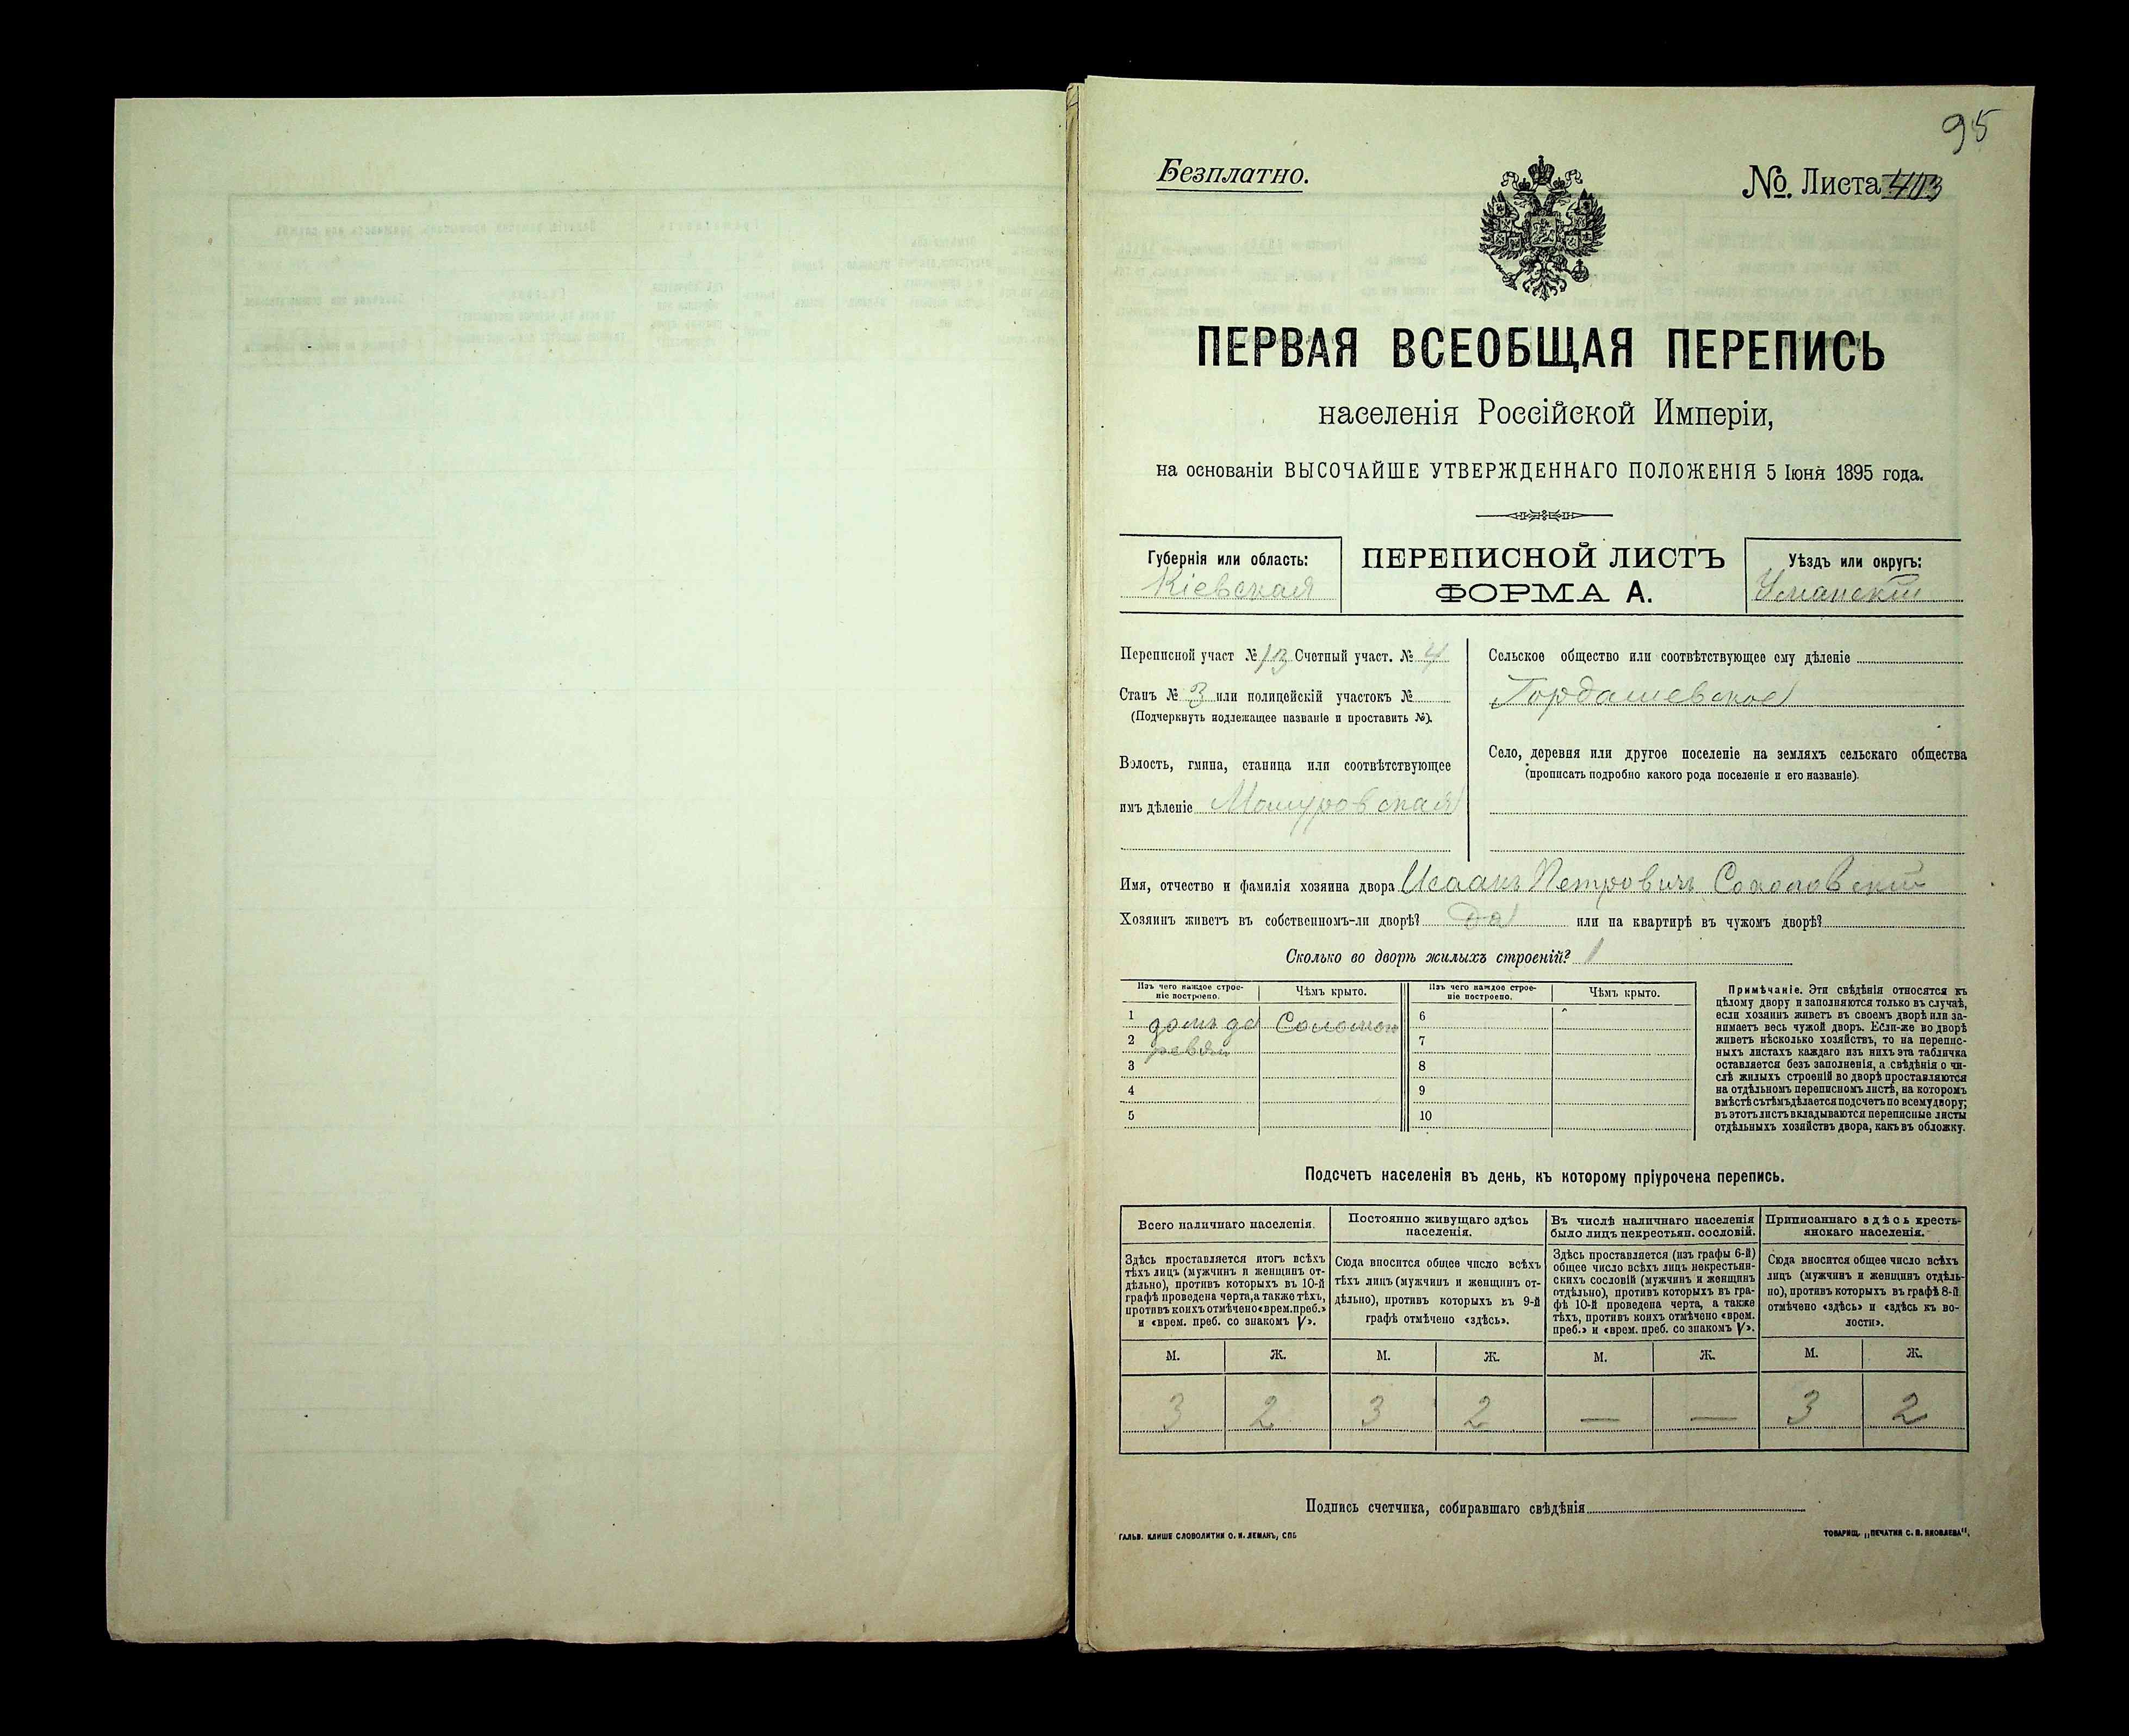 95
Безплатно.
№. Листа 403
ПЕРВАЯ ВСЕОБЩАЯ ПЕРЕПИСЬ
населенія Россійской Имперіи,
на основаніи ВЫСОЧАЙШЕ УТВЕРЖДЕННАГО ПОЛОЖЕНІЯ 5 Іюня 1895 года.
Губернія или область:
Кіевская
ПЕРЕПИСНОЙ ЛИСТЪ
ФОРМА А.
Уѣздъ или округъ:
Уманскій
Переписной участ № 13 Счетный участ. № 4
Станъ № 3 или полицейскій участокъ №
(Подчеркнуть подлежащее названіе и проставить №).
Волость, гмина, станица или соотвѣтствующее
имъ дѣленіе Машуровская
Сельское общество или соотвѣтствующее ему дѣленіе
Гордашевское
Село, деревня или другое поселеніе на земляхъ сельскаго общества
(прописать подробно какого рода поселеніе и его названіе).
Имя, отчество и фамилія хозяина двора Исаакъ Петровичъ Соколовскій
Хозяинъ живетъ въ собственномъ-ли дворѣ? да или на квартирѣ въ чужомъ дворѣ?
Сколько во дворѣ жилыхъ строеній? 1
Изъ чего каждое строе-
ніе построено.
Чѣмъ крыто.
1 домъ де Соломой
2 ревян
3
4
5
Изъ чего каждое строе-
ніе построено.
Чѣмъ крыто.
6
7
8
9
10
Примѣчаніе. Эти свѣдѣнія относятся къ
цѣлому двору и заполняются только въ случаѣ,
если хозяинъ живетъ въ своемъ дворѣ или за-
нимаетъ весь чужой дворъ. Если-же во дворѣ
живетъ нѣсколько хозяйствъ, то на перепис-
ныхъ листахъ каждаго изъ нихъ эта табличка
оставляется безъ заполненія, а свѣдѣнія о чи-
слѣ жилыхъ строеній во дворѣ проставляются
на отдѣльномъ переписномъ листѣ, на которомъ
вмѣстѣ съ тѣмъ дѣлается подсчетъ по всему двору;
въ этотъ листъ вкладываются переписные листы
отдѣльныхъ хозяйствъ двора, какъ въ обложку.
Подсчетъ населенія въ день, къ которому пріурочена перепись.
Всего наличнаго населенія.
Здѣсь проставляется итогъ всѣхъ
тѣхъ лицъ (мужчинъ и женщинъ от-
дѣльно), противъ которыхъ въ 10-й
графѣ проведена черта, а также тѣхъ,
противъ коихъ отмѣчено «врем. преб.»
и «врем. преб. со знакомъ V».
Постоянно живущаго здѣсь
населенія.
Сюда вносится общее число всѣхъ
тѣхъ лицъ (мужчинъ и женщинъ от-
дѣльно), противъ которыхъ въ 9-й
графѣ отмѣчено «здѣсь».
Въ числѣ наличнаго населенія
было лицъ некрестьян. сословій.
Здѣсь проставляется (изъ графы 6-й)
общее число всѣхъ лицъ некрестьян-
скихъ сословій (мужчинъ и женщинъ
отдѣльно), противъ которыхъ въ гра-
фѣ 10-й проведена черта, а также
тѣхъ, противъ коихъ отмѣчено «врем.
преб.» и «врем. преб. со знакомъ V».
Приписаннаго здѣсь кресть-
янскаго населенія.
Сюда вносится общее число всѣхъ
лицъ (мужчинъ и женщинъ отдѣль-
но), противъ которыхъ въ графѣ 8-й
отмѣчено «здѣсь» и «здѣсь къ во-
лости».
М. Ж. М. Ж. М. Ж. М. Ж.
3 2 3 2 — — 3 2
Подпись счетчика, собиравшаго свѣдѣнія
ГАЛЬВ. КЛИШЕ СЛОВОЛИТНИ О. И. ЛЕМАНЪ, СПБ
ТОВАРИЩ. „ПЕЧАТНЯ С. П. ЯКОВЛЕВА".